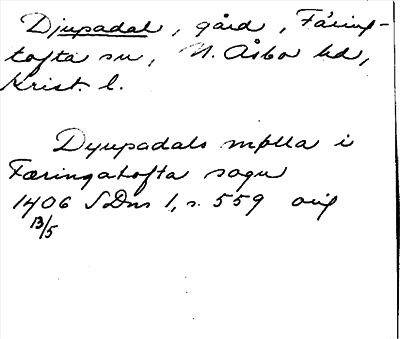 Djupadal, gård, Fåring-
tofta sn, N. Åsbo hd,
Krist. l.
Dyupadals mølla i
Færingatofta sogn
1406 SDns 1, s. 559 orig
13/5